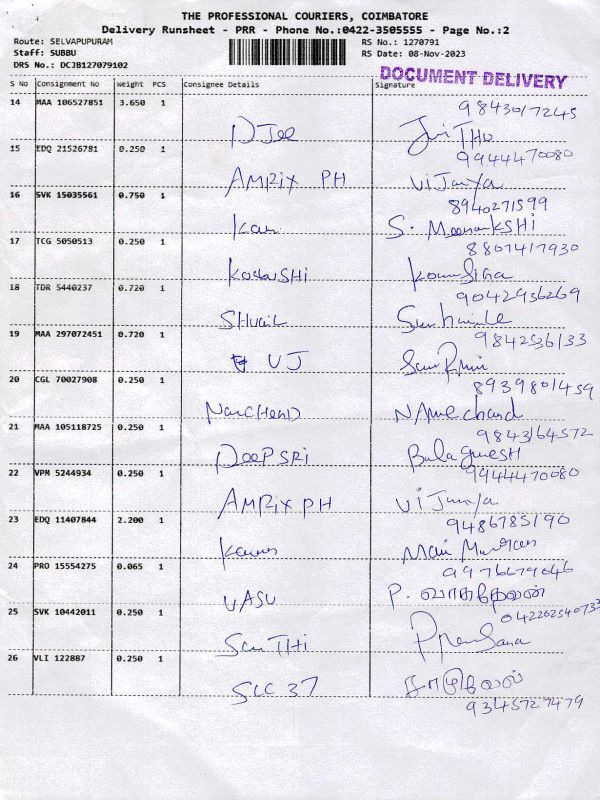 THE PROFESSIONAL COURIERS, COIMBATORE
Delivery Runsheet - PRR - Phone No.:0422-3505555 - Page No.:2
Route: SELVAPUPURAM RS No.: 1270791
Staff: SUBBU RS Date: 08-Nov-2023
DRS No.: DCJB127079102
DOCUMENT DELIVERY
S No Consignment No Weight PCS Consignee Details Signature
14 MAA 106527851 3.650 1
9843017245
15 EDQ 21526781 0.250 1
9944470080
AMRIX PH Vijanya
16 SVK 15035561 0.750 1
8940271599
S. MeenakSHi
17 TCG 5050513 0.250 1
8807417930
18 TDR 5440237 0.720 1
9042936269
19 MAA 297072451 0.720 1
9842536133
UJ
20 CGL 70027908 0.250 1
8939801459
NAmechand
21 MAA 105118725 0.250 1
9843164572
DeePSRi BalagnesH
22 VPM 5244934 0.250 1
9944470080
AMRIX PH
23 EDQ 11407844 2.200 1
9486785190
24 PRO 15554275 0.065 1
9976679646
VASU P. வாசுதேவன்
25 SVK 10442011 0.250 1
04222540733
26 VLI 122887 0.250 1
SLC 37
9345727479